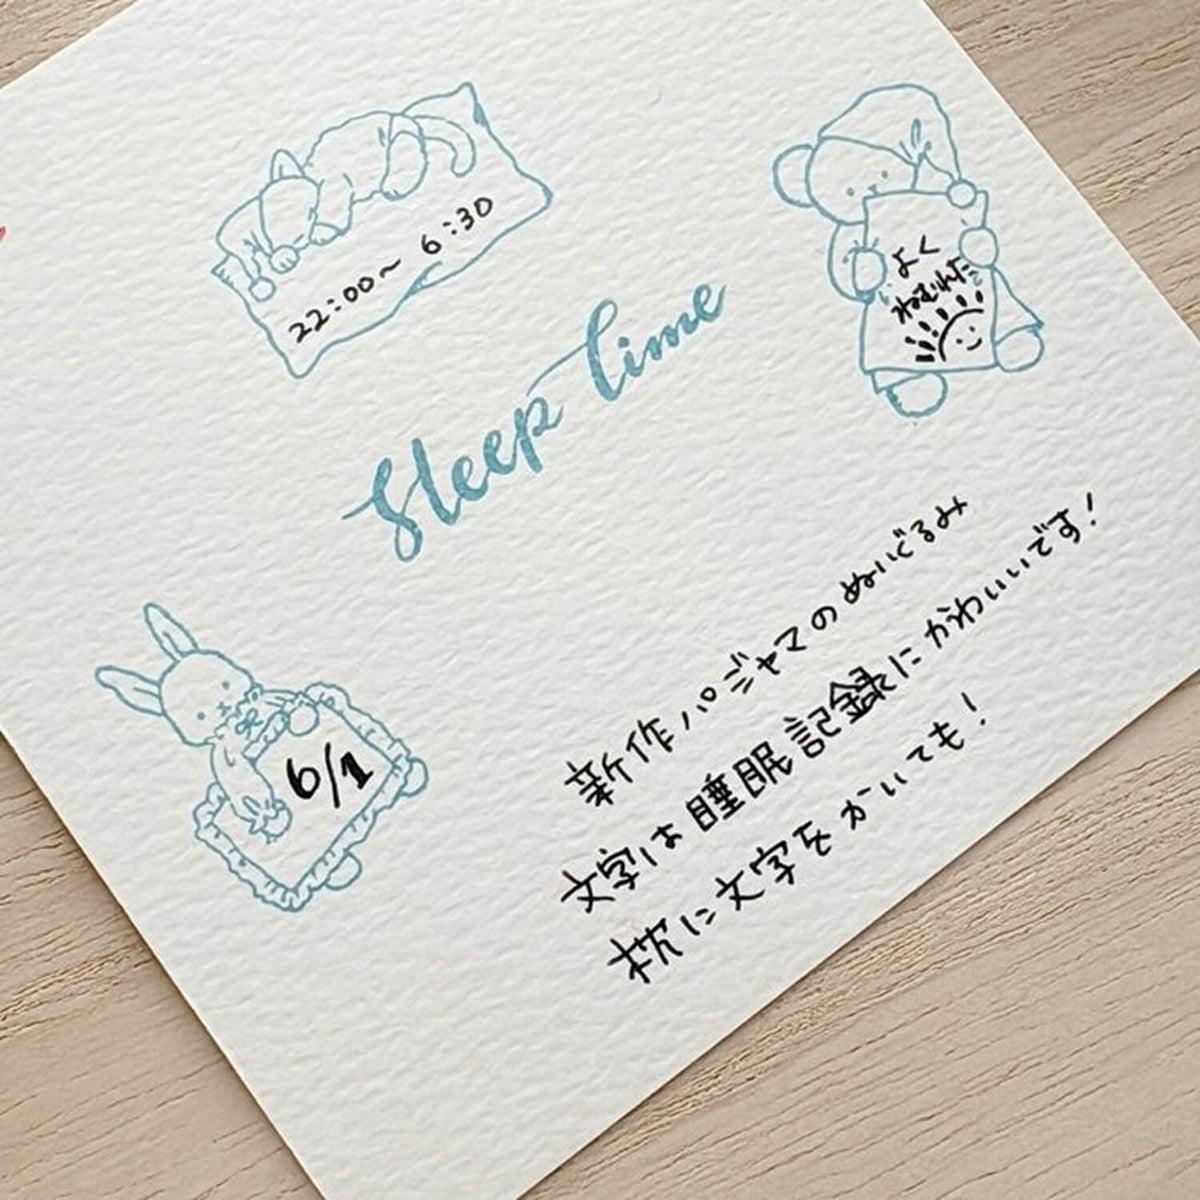 22:00〜 6:30
よく
ねむれた
Sleep time
6/1
新作パジャマのぬいぐるみ
文字は睡眠記録にかわいいです!
枕に文字をかいても!